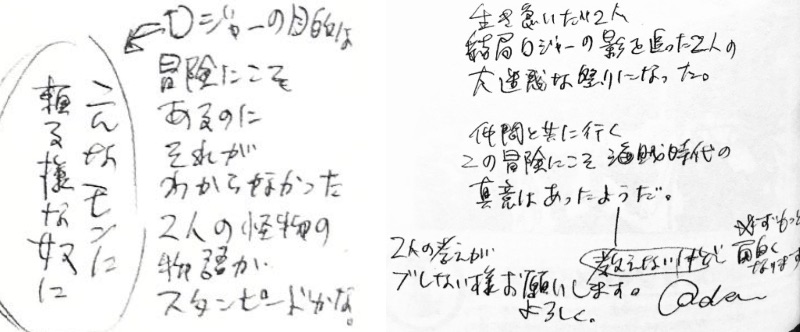 ロジャーの目的は
冒険にこそ
あるのに
それが
わからなかった
2人の怪物の
物語が
スタンピードかな。
こんなモンに
頼る様な奴に
生き急いだ2人
結局ロジャーの影を追った2人の
大迷惑な祭りになった。
仲間と共に行く
この冒険にこそ海賊時代の
真意はあったようだ。
教えないけど
必ずもっと
面白く
なります
2人の考えが
ブレない様お願いします。
よろしく。